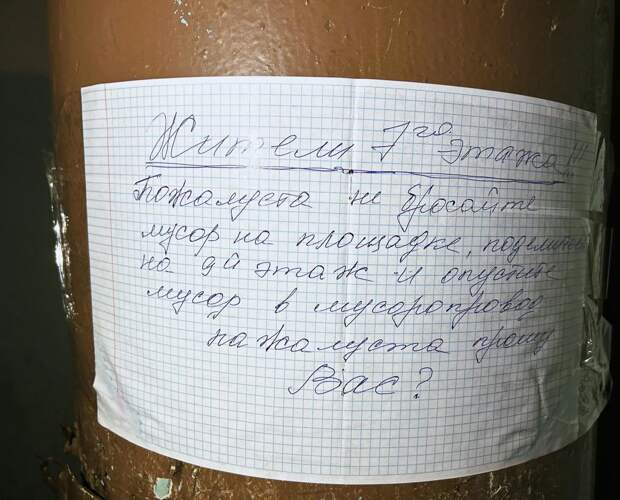 Жители 7го этажа!!!
Пожалуста не бросайте
мусор на площадке,
на й этаж и опустите
мусор в мусоропровод
пажалуста прошу
Вас?